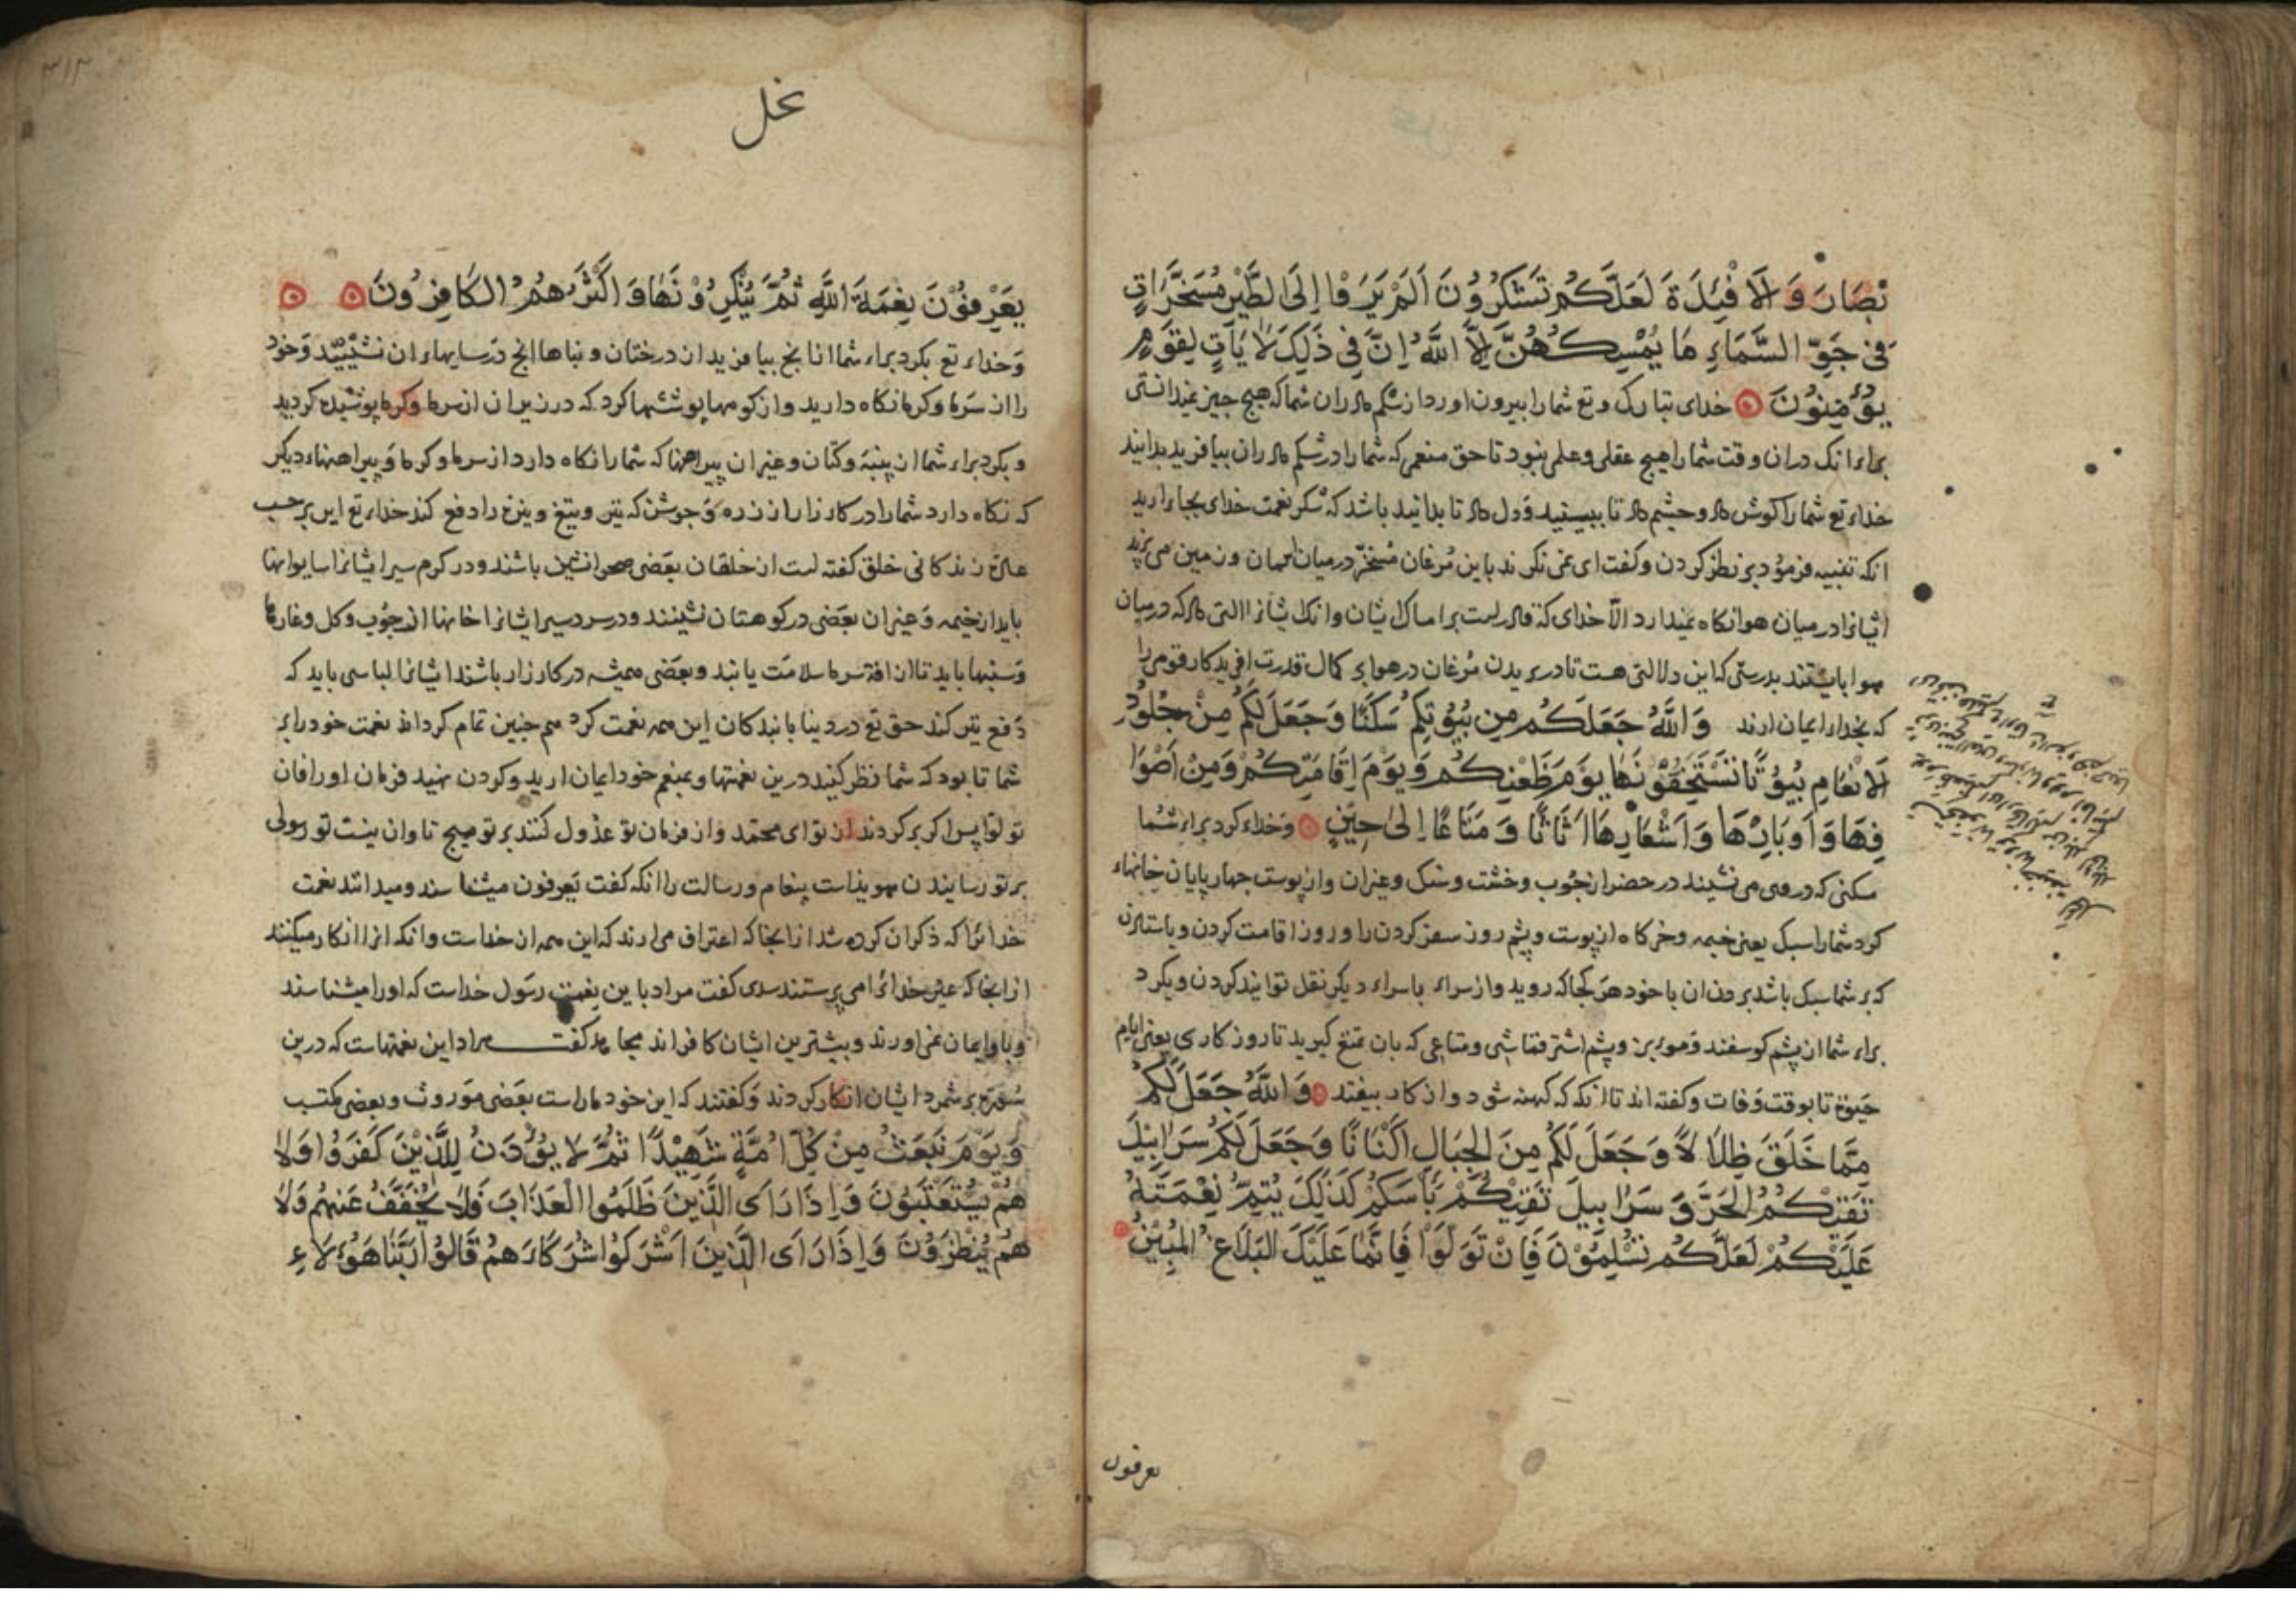 بْصَارَ وَالْاَفْئِدَةَ لَعَلَّكُمْ تَشْكُرُوُنَ اَلَمْ يَرَوْا اِلَى الطَّيْرِ مُسَخَّرَاتٍ
فِي جَوِّ السَّمَاءِ مَا يُمْسِكُهُنَّ اِلاَّ اللّٰهُ اِنَّ فِي ذَلِكَ لَاٰيَاتٍ لِقَوْمٍ
يُؤْمِنُوُنَ خدای تبارک و تع شما را بیرون اورد از شکم مادران شما که هیچ چیز نمیدانستی
براء انک در ان وقت شما را هیچ عقلی و علمی نبود تا حق منعمی که شما را در شکم مادران بیافرید بدانید
خداء تع شما را کوش داد و چشم داد تا ببینید و دل داد تا بدانید باشد که شکر نعمت خدای بجاء ارید
انکه تنبیه فرمود بر نظر کردن و کفت ای نمی نکرند باین مرغان مسخّر در میان اسمان و زمین می پرید
ایشانرا در میان هوا نکاه نمیدارد الّا خدای که قادرست بر امساک ایشان وانک ایشانرا التی داد که در میان
هوا بایستند بدرستی که این دلالتی هست تا در پریدن مرغان در هوا بر کمال قدرت افریدکار قومی را
که بخدا ایمان ارند وَاللّٰهُ جَعَلَكُمْ مِن بُيُوتِكُمْ سَكَنًا وَجَعَلَ لَكُمْ مِنْ جُلُودِ
الَانْعَامِ بُيُوْتًا تَسْتَخِفُّوْنَهَا يَوْمَ ظَعْنِكُمْ وَيَوْمَ اِقَامَتِكُمْ وَمِنْ اَصْوَا
فِهَا وَاَوبَارِهَا وَاَشْعَارِهَا اَثَاثًا وَمَتَاعًا اِلَى حِينٍ وخداء کرد براء شما
مسکنی که در وی می نشیند در حضر از چوب و خشت و سنک و غیر ان و از پوست چهار پایان خانهاء
کرد شما را سبک یعنی خیمه و خرکاه از پوست و پشم روز سفر کردن را و روز اقامت کردن و باستادن
که بر شما سبک باشد بردن ان با خود هر کجا که روید و از سراء باسراء دیکر نقل توانید کردن و بکرد
براء شما از پشم کوسفند و موء بز و پشم اشتر قماشی و متاعی که بان تمتع کیرید تا روز کاری یعنی ایام
حیوة تا بوقت وفات و کفته اند تا انکه که کهنه شود و از کار بیفتد وَاللّٰهُ جَعَلَ لَكُمْ
مِمَّا خَلَقَ ظِلَالًا وَجَعَلَ لَكُمْ مِنَ الْجِبَالِ اَكْنَانًا وَجَعَلَ لَكُمْ سَرَابِيلَ
تَقِيْكُمُ الْحَرَّ وَ سَرَابِيلَ تَقِيْكُمْ بَأْسَكُمْ كَذٰلِكَ يُتِمُّ نِعْمَتَهُ
عَلَيْكُمْ لَعَلَّكُمْ تُسْلِمُوْنَ فَاِنْ تَوَلَّوْا فَاِنَّمَا عَلَيْكَ الْبَلَاغُ الْمُبِيْنُ
یعرفون
نحل
۳۱۳
يَعْرِفُوْنَ نِعْمَةَ اللّٰهِ ثُمَّ يُنْكِرُوْنَهَا وَاَكْثَرُهُمُ الْكَافِرُونَ
وخداء تع بکرد براء شما از انچ بیافرید از درختان و بناها انچ در سایهاء ان نشینید وخود
را از سرما و کرما نکاه دارید و از کوهها پوششها کرد که در زیر ان از سرما و کرما پوشیده کردید
و بکرد براء شما از پنبه و کتان و غیر ان پیراهنها که شما را نکاه دارد از سرما و کرما و پیراهنهاء دیکر
که نکاه دارد شما را در کارزار از زره و جوشن که تیر و تیغ و نیزه را دفع کند خداء تع این بر حسب
عادة زندکانی خلق کفته است از خلقان بعضی صحرانشین باشند و در کرم سیر ایشانرا سایوانها
باید از خیمه و غیر ان بعضی در کوهستان نشینند و در سردسیر ایشانرا خانها از چوب و کل و غارها
باید تا از افة سرما سلامت یابند و بعضی همیشه در کارزار باشند ایشانرا لباسی باید که
دفع تیر کند حق تع در دنیا بابندکان این همه نعمت کرد هم چنین تمام کرداند نعمت خود را بر
شما تا بود که شما نظر کنید درین نعمتها و بمنعم خود ایمان ارید و کردن نهید فرمان او را فان
تولوا پس اکر برکردند از تو ای محمد و از فرمان تو عدول کنند بر تو هیچ تاوان نیست تو رسولی
بر تو رسانیدن هویداست پیغام و رسالت را انکه کفت یعرفون میشناسند و میدانند نعمت
خدائرا که ذکر ان کرده شد از انجا که اعتراف می ارند که این همه از خداست وانکه انرا انکار میکنند
از انجا که غیر خدائرا می پرستند سدی کفت مراد باین نعمت رسول خداست که او را میشناسند
و باو ایمان نمی اورند و بیشترین ایشان کافراند مجاهد کفت مراد این نعمتهاست که درین
سورة بر شمرد ایشان انکار کردند و کفتند که این خود ماراست بعضی موروث و بعضی مکتسب
وَيَوْمَ نَبْعَثُ مِنْ كُلِّ اُمَّةٍ شَهِيْدًا ثُمَّ لَا يُؤْذَنُ لِلَّذِيْنَ كَفَرُوا وَلَا
هُمْ يُسْتَعْتَبُونَ وَاِذَا رَاَى الَّذِينَ ظَلَمُوا الْعَذَابَ فَلَا يُخَفَّفُ عَنْهُمْ وَلَا
هُمْ يُنْظَرُوُنَ وَاِذَا رَاَى الَّذِينَ اَشْرَكُوا شُرَكَاءَهُمْ قَالُوا رَبَّنَا هَؤُلَاءِ